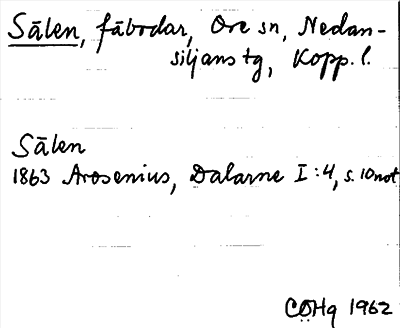 Sālen, fābodar, Ore sn, Nedan-
siljans tg, Kopp. l.
Sālen
1863 Arosenius, Dalarne I:4, s. 10 not
CÖHg 1962